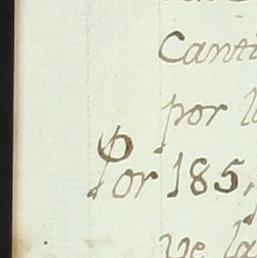 Canti
por l
Por 185,
ye la